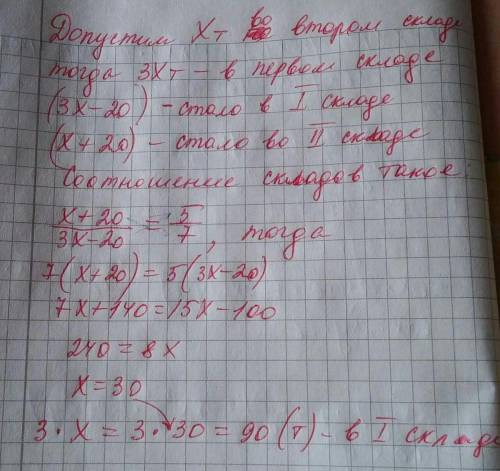 Допустим Xт во втором складе
тогда 3Xт - в первом складе
(3X-20) - стало в I складе
(X+20) - стало во II складе
Соотношение складов такое
X+20/3X-20 = 5/7, тогда
7(X+20)=5(3X-20)
7X+140=15X-100
240=8X
X=30
3·X=3·30=90(т)-в I складе